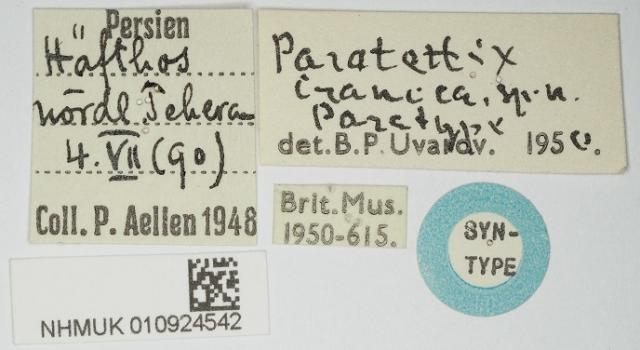 Persien
Häfthos
nördl Teheran
4. VII (90)
Coll. P. Aellen 1948
Paratettix
iranica, sp. n.
Paratype
det. B. P. Uvarov. 1950.
Brit. Mus.
1950-615.
SYN-
TYPE
NHMUK 010924542